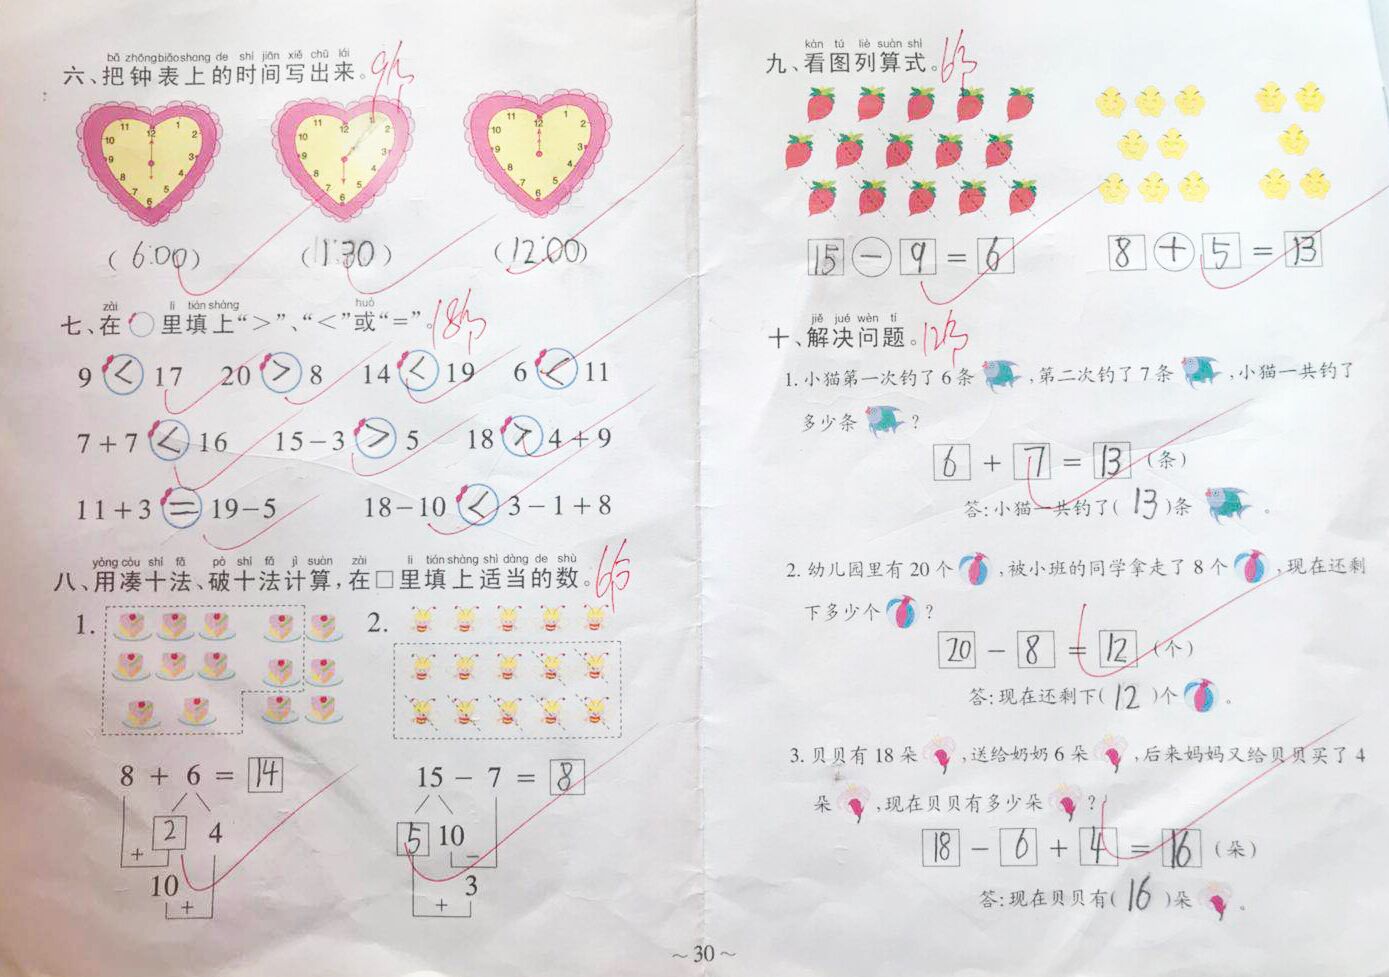 bǎ zhōngbiǎoshang de shí jiān xiě chū lái
六、把钟表上的时间写出来。9分
11 12 1 2 3 4 5 6 7 8 9 10
11 12 1 2 3 4 5 6 7 8 9 10
11 12 1 2 3 4 5 6 7 8 9 10
(6:00) (1:30) (12:00)
zài li tián shàng huò
七、在○里填上“>”、“<”或“=”。18分
9 < 17 20 > 8 14 < 19 6 < 11
7+7 < 16 15-3 > 5 18 > 4+9
11+3 = 19-5 18-10 < 3-1+8
yòng còu shí fǎ pò shí fǎ jì suàn zài li tián shàng shì dàng de shù
八、用凑十法、破十法计算,在□里填上适当的数。6分
1. 2.
8 + 6 = 14 15 - 7 = 8
2 4 5 10
+ -
10 3
+ +
kàn tú liè suàn shì
九、看图列算式。6分
15 - 9 = 6 8 + 5 = 13
jiě jué wèn tí
十、解决问题。12分
1.小猫第一次钓了6条,第二次钓了7条,小猫一共钓了
多少条?
6 + 7 = 13 (条)
答:小猫一共钓了(13)条。
2.幼儿园里有20个,被小班的同学拿走了8个,现在还剩
下多少个?
20 - 8 = 12 (个)
答:现在还剩下(12)个。
3.贝贝有18朵,送给奶奶6朵,后来妈妈又给贝贝买了4
朵,现在贝贝有多少朵?
18 - 6 + 4 = 16 (朵)
答:现在贝贝有(16)朵。
~30~